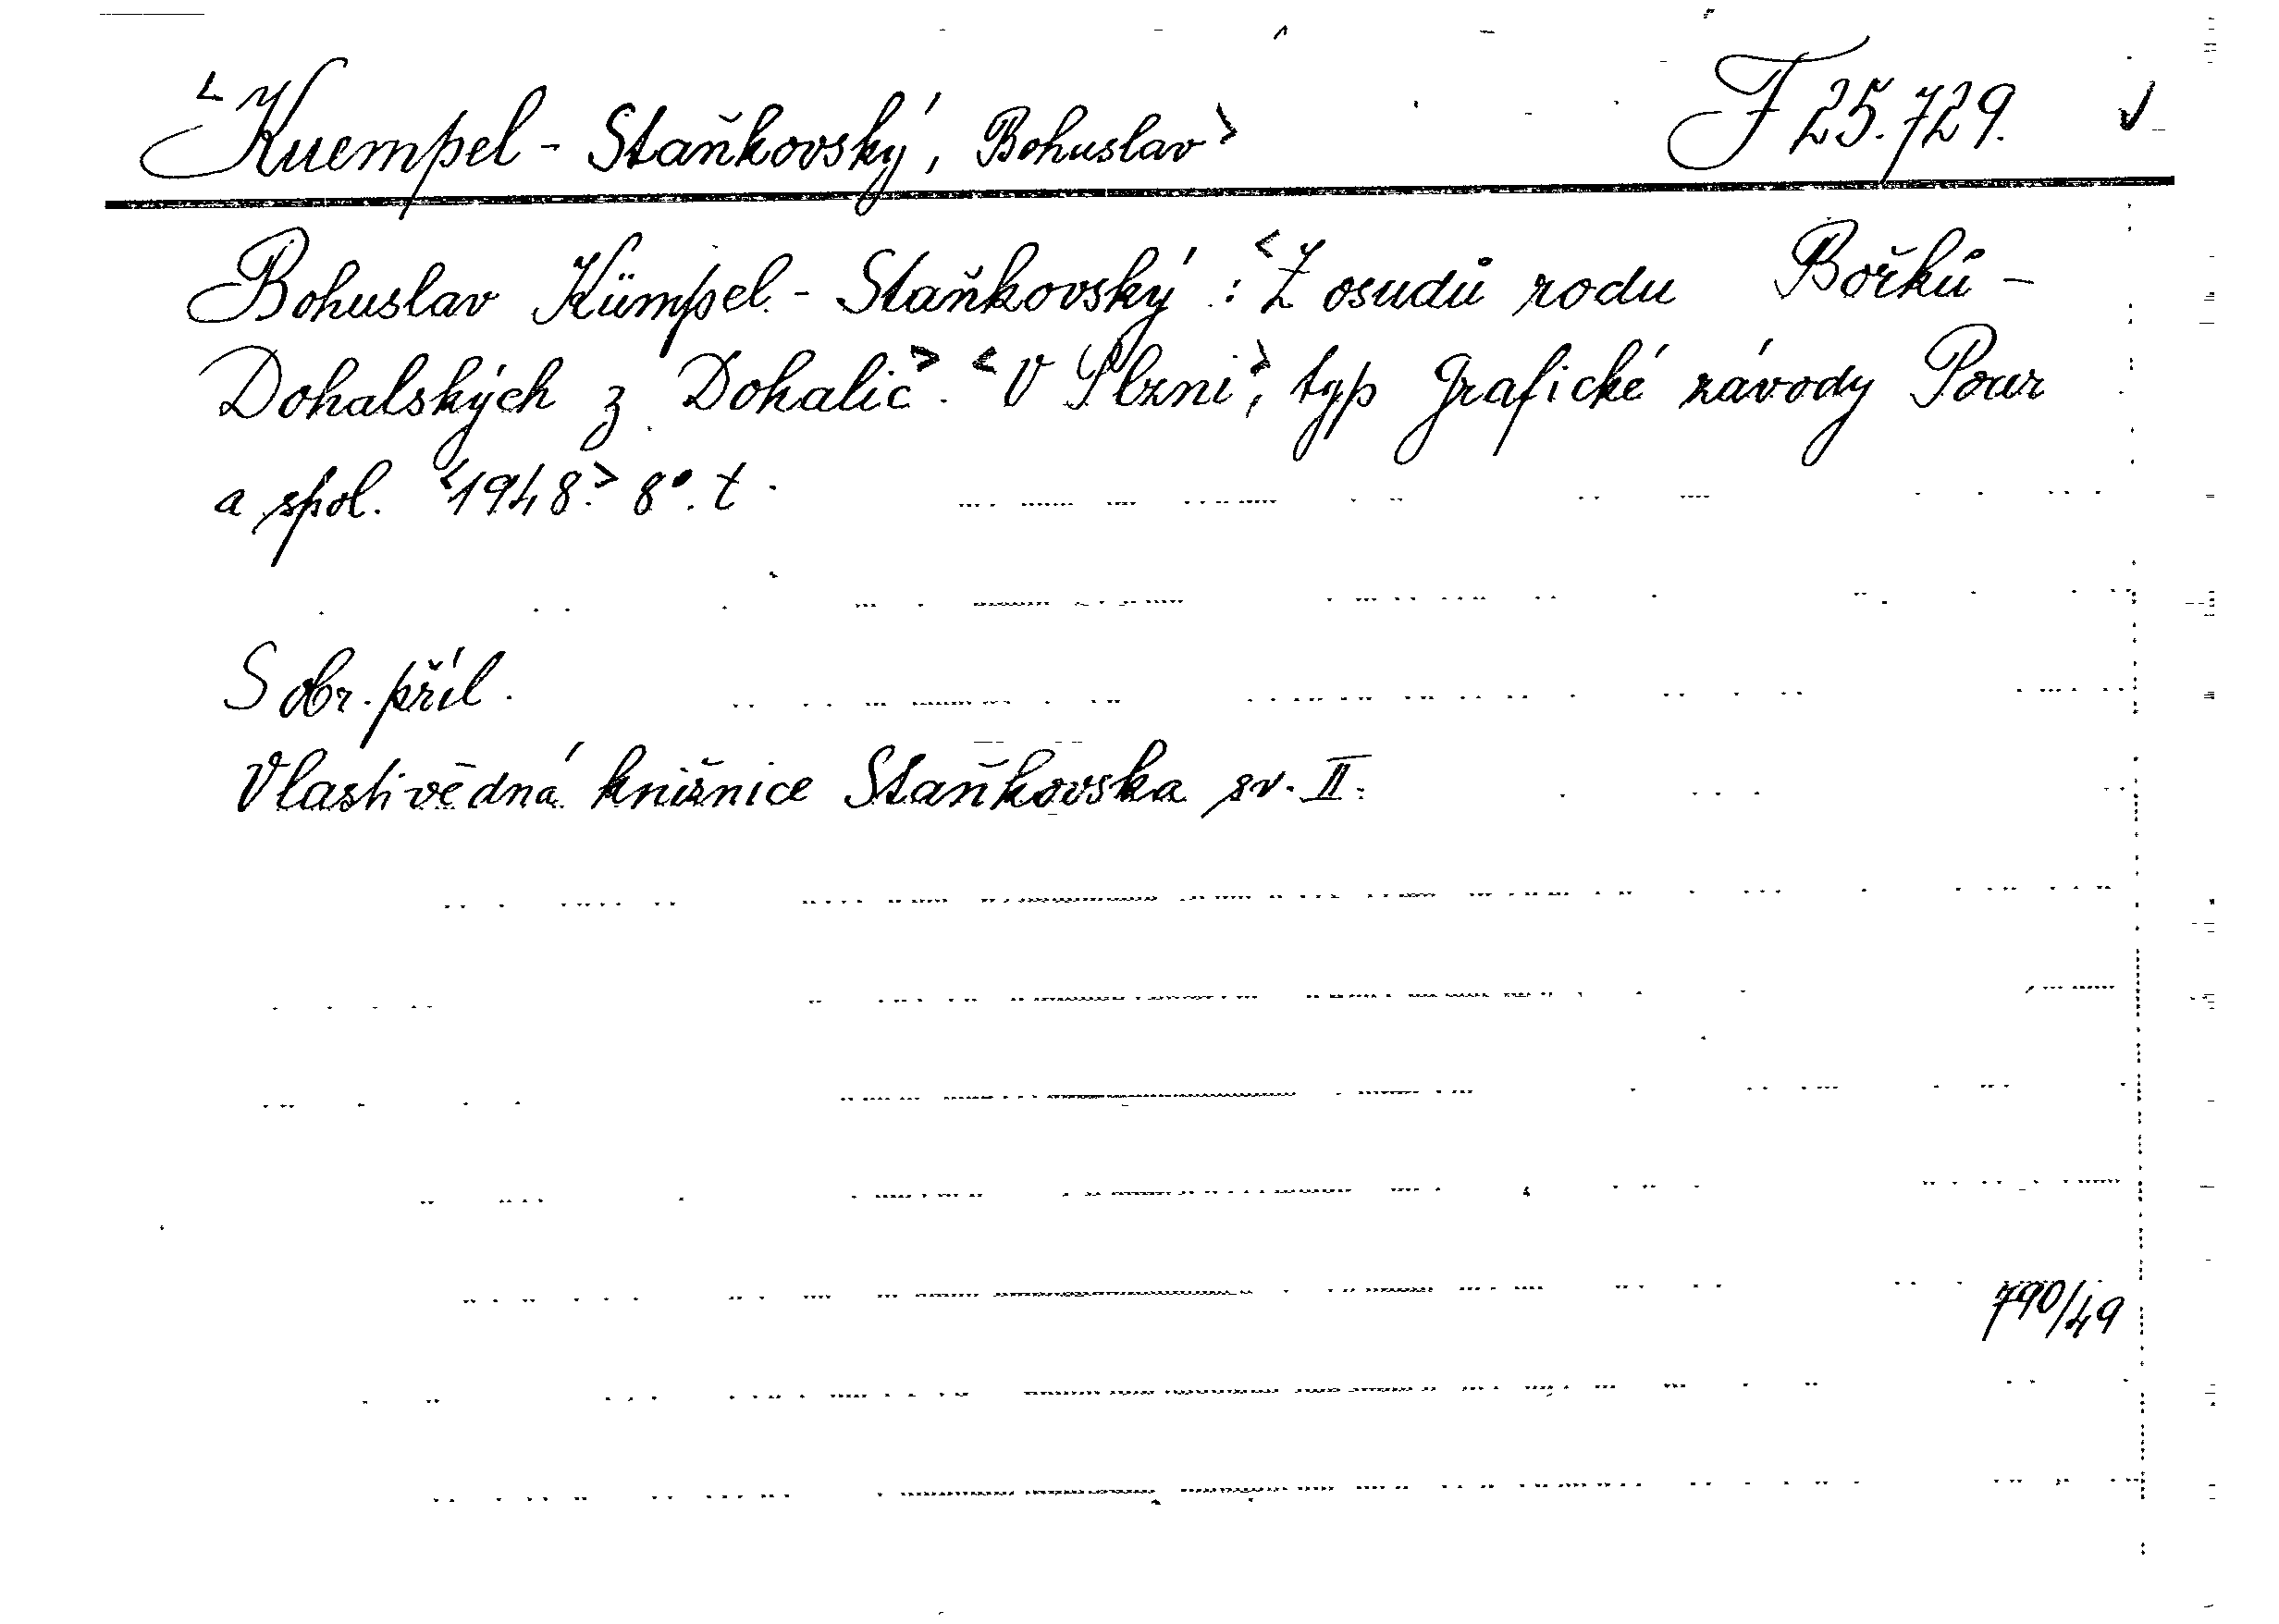 <Kuempel - Staňkovský, Bohuslav> F 25.729. ✓
Bohuslav Kümpel - Staňkovský : <Z osudů rodu Bořků -
Dohalských z Dohalic>. <V Plzni>, typ Grafické závody Pour
a spol. <1948.> 8°. t.
S obr. příl.
Vlastivědná knižnice Staňkovska sv. II.
790/49